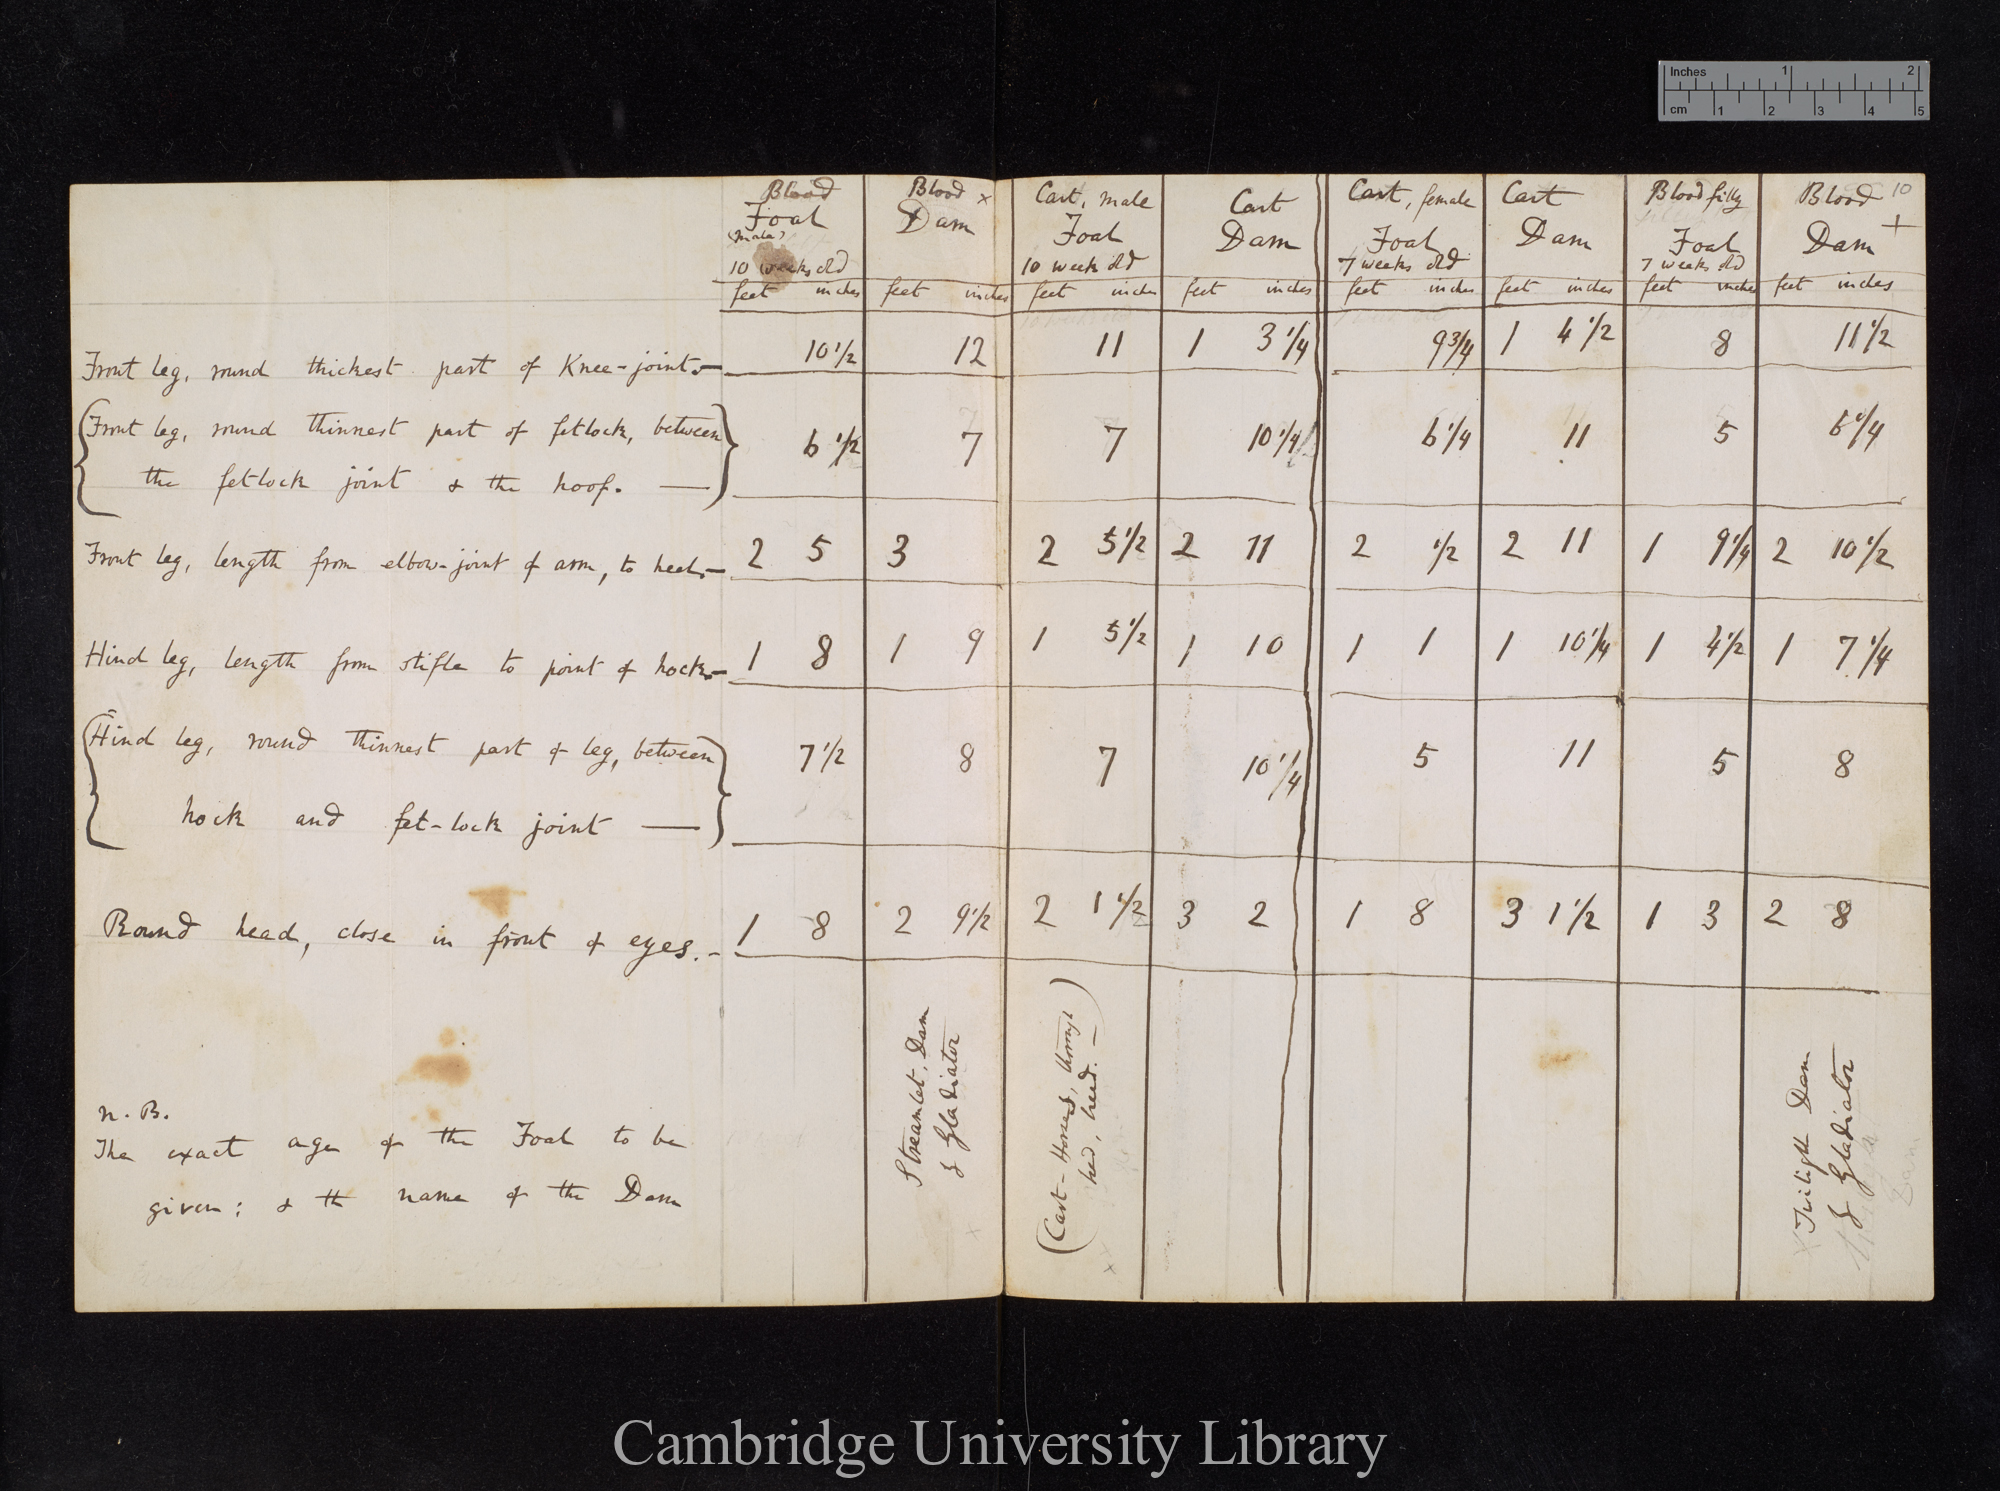 Inches 1 2
cm 1 2 3 4 5
Blood Foal (male) 10 weeks old | Blood × Dam | Cart, male Foal 10 week old | Cart Dam | Cart, female Foal 7 weeks old | Cart Dam | Blood filly Foal 7 weeks old | Blood Dam + 10
feet inches | feet inches | feet inches | feet inches | feet inches | feet inches | feet inches | feet inches
Front leg, round thickest part of Knee-joint — 10 1/2 | 12 | 11 | 1 3 1/4 | 9 3/4 | 1 4 1/2 | 8 | 11 1/2
Front leg, round thinnest part of fetlock, between
the fetlock joint & the hoof. — 6 1/2 | 7 | 7 | 10 1/4 | 6 1/4 | 11 | 5 | 6 1/4
Front leg, length from elbow-joint of arm, to heel. — 2 5 | 3 | 2 5 1/2 | 2 11 | 2 1/2 | 2 11 | 1 9 1/4 | 2 10 1/2
Hind leg, length from stifle to point of hock. — 1 8 | 1 9 | 1 5 1/2 | 1 10 | 1 1 | 1 10 1/4 | 1 4 1/2 | 1 7 1/4
Hind leg, round thinnest part of leg, between
hock and fet-lock joint — 7 1/2 | 8 | 7 | 10 1/4 | 5 | 11 | 5 | 8
Round head, close in front of eyes. — 1 8 | 2 9 1/2 | 2 1 1/2 | 3 2 | 1 8 | 3 1 1/2 | 1 3 | 2 8
Streamlet, Dam
& Gladiator
(Cart-Horses, thorough
bred, bred. —)
Twilight Dam
& Gladiator
Dam
n. B.
The exact age of the Foal to be
given; & the name of the Dam
Cambridge University Library